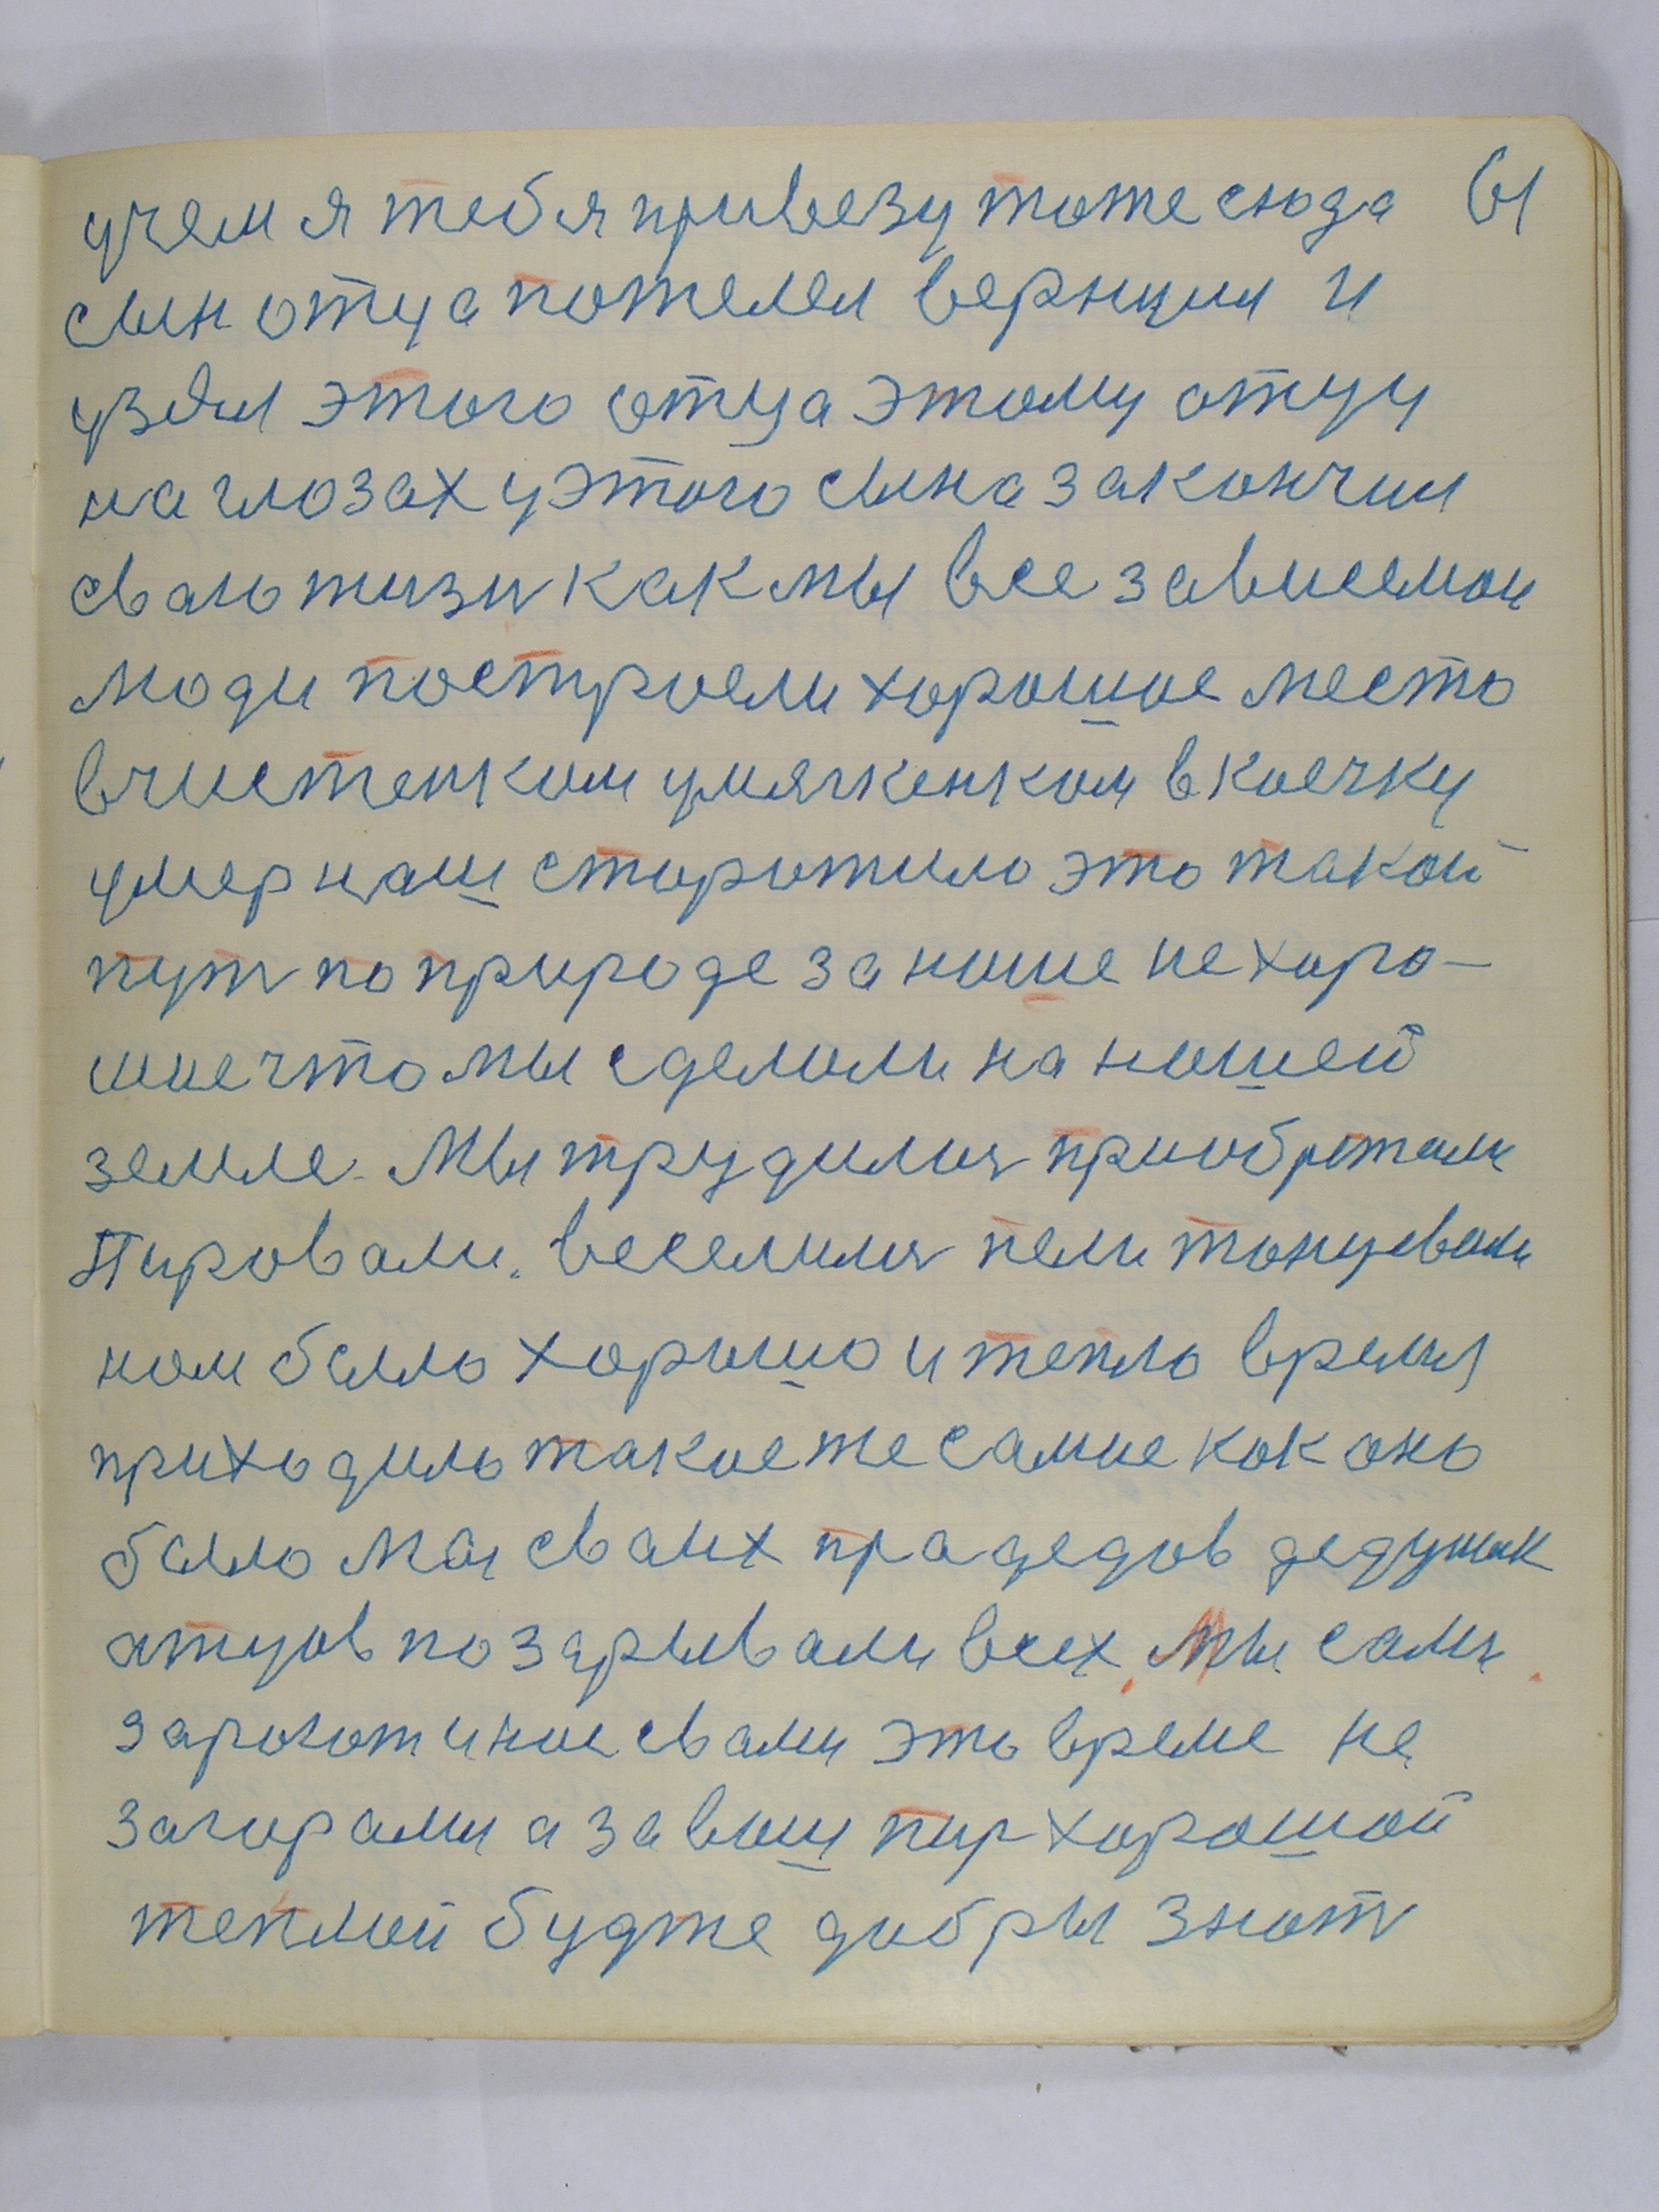 учем я тебя привезу тоже сюда 61
сын отца пожелел вернцил и
узял этого отца этому отцу
на глозах у этого сына закончил
сваю жизн как мы все зависемои
Люди построели хорошое место
в чистенком умягкенком в коечку
умер наш сторожило это такой
пут по природе за наше не харо-
шие что мы сделоли на нашей
земле. Мы трудилис приобретали
Пировали. веселилис пели тонцевали
ном было хорошо и тепло время
приходило такое же самое как оно
было Мы сваих прадедов дедушик
атцов позарывали всех. Мы сами.
зароют и нас свами это време не
за горами а за ваш пир хороший
теплой будте добры знат